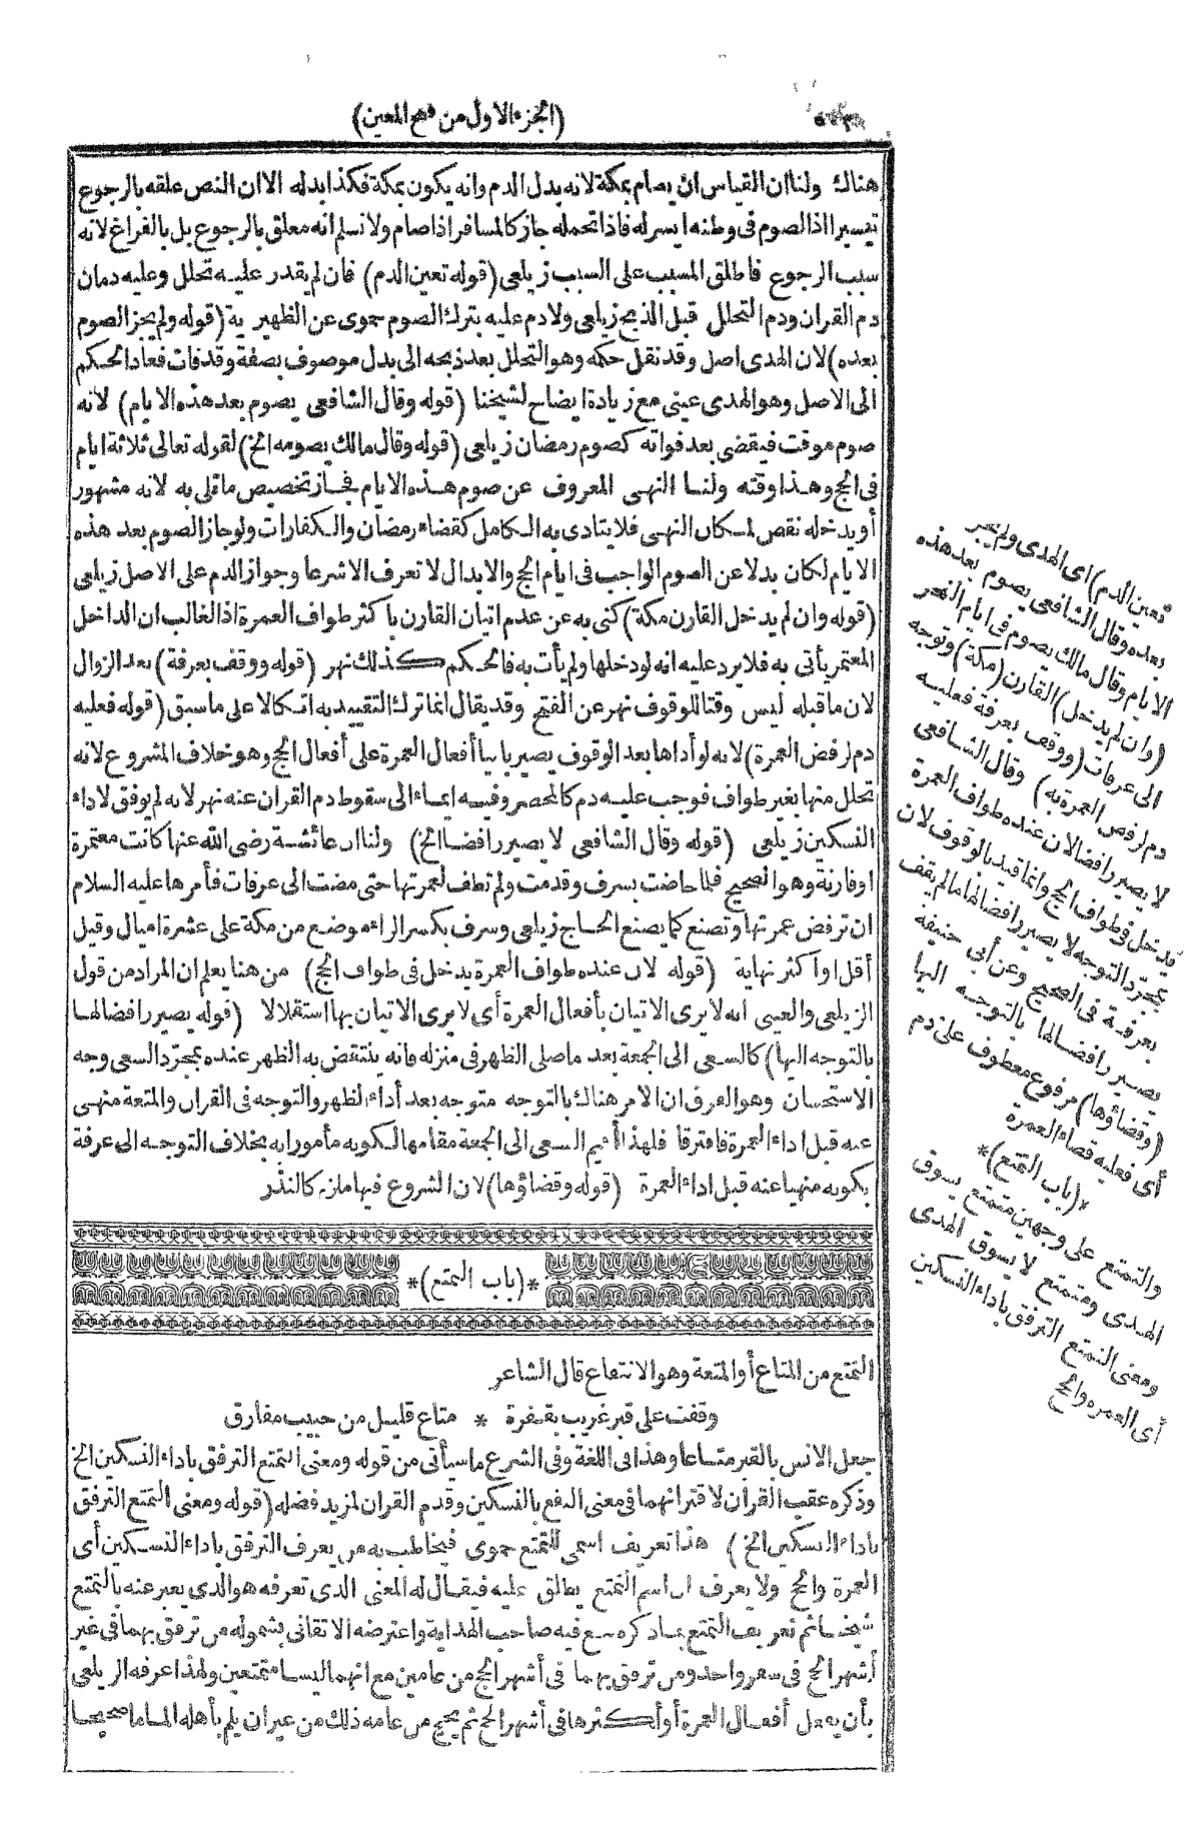 (الجزء الاول من فتح المعين)
هناك ولنا ان القياس ان يصام بمكة لانه بدل الدم وانه يكون بمكة فكذا بدله الا ان النص علقه بالرجوع
تيسيرا اذ الصوم فى وطنه ايسر له فاذا تحمله جاز كالمسافر اذا صام ولا نسلم انه معلق بالرجوع بل بالفراغ لانه
سبب الرجوع فاطلق المسبب على السبب زيلعى (قوله تعين الدم) فان لم يقدر عليه تحلل وعليه دمان
دم القران ودم التحلل قبل الذبح زيلعى ولا دم عليه بترك الصوم حموى عن الظهيرية (قوله ولم يجز الصوم
بعده) لان الهدى اصل وقد نقل حكمه وهو التحلل بعد ذبحه الى بدل موصوف بصفة وقد فات فعاد الحكم
الى الاصل وهو الهدى عينى مع زيادة ايضاح لشيخنا (قوله وقال الشافعى يصوم بعد هذه الايام) لانه
صوم موقت فيقضى بعد فواته كصوم رمضان زيلعى (قوله وقال مالك يصومه الخ) لقوله تعالى ثلاثة ايام
فى الحج وهذا وقته ولنا النهى المعروف عن صوم هذه الايام فجاز تخصيص ماتلى به لانه مشهور
أو يدخله نقص لمكان النهى فلا يتادى به الكامل كقضاء رمضان والكفارات ولو جاز الصوم بعد هذه
الايام لكان بدلا عن الصوم الواجب فى ايام الحج والابدال لا تعرف الا شرعا وجواز الدم على الاصل زيلعى
(قوله وان لم يدخل القارن مكة) كنى به عن عدم اتيان القارن باكثر طواف العمرة اذ الغالب ان الداخل
المعتمر يأتى به فلا يرد عليه انه لو دخلها ولم يأت به فالحكم كذلك نهر (قوله ووقف بعرفة) بعد الزوال
لان ما قبله ليس وقتا للوقوف نهر عن الفتح وقد يقال انما ترك التقييد به اتكالا على ما سبق (قوله فعليه
دم لرفض العمرة) لانه لو أداها بعد الوقوف يصير بانيا أفعال العمرة على أفعال الحج وهو خلاف المشروع لانه
تحلل منها بغير طواف فوجب عليه دم كالمحصر وفيه ايماء الى سقوط دم القران عنه نهر لانه لم يوفق لاداء
النسكين زيلعى (قوله وقال الشافعى لا يصير رافضا الخ) ولنا ان عائشة رضى الله عنها كانت معتمرة
او قارنة وهو الصحيح فلما حاضت بسرف وقدمت ولم تطف لعمرتها حتى مضت الى عرفات فأمرها عليه السلام
ان ترفض عمرتها وتصنع كما يصنع الحاج زيلعى وسرف بكسر الراء موضع من مكة على عشرة اميال وقيل
أقل او أكثر نهاية (قوله لان عنده طواف العمرة يدخل فى طواف الحج) من هنا يعلم ان المراد من قول
الزيلعى والعينى انه لا يرى الاتيان بأفعال العمرة أى لا يرى الاتيان بها استقلالا (قوله يصير رافضا لها
بالتوجه اليها) كالسعى الى الجمعة بعد ما صلى الظهر فى منزله فانه ينتقض به الظهر عنده بمجرّد السعى وجه
الاستحسان وهو الفرق ان الامر هناك بالتوجه متوجه بعد أداء الظهر والتوجه فى القران والمتعة منهى
عنه قبل اداء العمرة فافترقا فلهذا أقيم السعى الى الجمعة مقامها لكونه مأمورا به بخلاف التوجه الى عرفة
لكونه منهيا عنه قبل اداء العمرة (قوله وقضاؤها) لان الشروع فيها ملزم كالنذر
*(باب التمتع)*
التمتع من المتاع أو المتعة وهو الانتفاع قال الشاعر
وقفت على قبر غريب بقفرة * متاع قليل من حبيب مفارق
جعل الانس بالقبر متاعا وهذا فى اللغة وفى الشرع ما سيأتى من قوله ومعنى التمتع الترفق باداء النسكين الخ
وذكره عقب القران لاقترانهما فى معنى النفع بالنسكين وقدم القران لمزيد فضله (قوله ومعنى التمتع الترفق
باداء النسكين الخ) هذا تعريف اسمى للتمتع حموى فيخاطب به من يعرف الترفق باداء النسكين أى
العمرة والحج ولا يعرف ان اسم التمتع يطلق عليه فيقال له المعنى الذى تعرفه هو الذى يعبر عنه بالتمتع
شيخنا ثم تعريف التمتع بما ذكره تبع فيه صاحب الهداية واعترضه الاتقانى بشموله من ترفق بهما فى غير
أشهر الحج فى سفر واحد ومن ترفق بهما فى أشهر الحج من عامين مع انهما ليسا متمتعين ولهذا عرفه الزيلعى
بأن يفعل أفعال العمرة أو أكثرها فى أشهر الحج ثم يحج من عامه ذلك من غير ان يلم بأهله الماما صحيحا
تعين الدم) اى الهدى ولم يجز
بعده وقال الشافعى يصوم بعد هذه
الايام وقال مالك يصوم فى ايام النحر
(وان لم يدخل) القارن (مكة) وتوجه
الى عرفات (ووقف بعرفة فعليه
دم لرفض العمرة به) وقال الشافعى
لا يصير رافضا لان عنده طواف العمرة
يدخل فى طواف الحج وانما قيد بالوقوف لان
بمجرّد التوجه لا يصير رافضا لها ما لم يقف
بعرفة فى الصحيح وعن أبى حنيفة
يصير رافضا لها بالتوجه اليها
(وقضاؤها) مرفوع معطوف على دم
أى فعليه قضاء العمرة
*(باب التمتع)*
والتمتع على وجهين متمتع يسوق
الهدى ومتمتع لا يسوق الهدى
ومعنى التمتع الترفق باداء النسكين
أى العمرة والحج